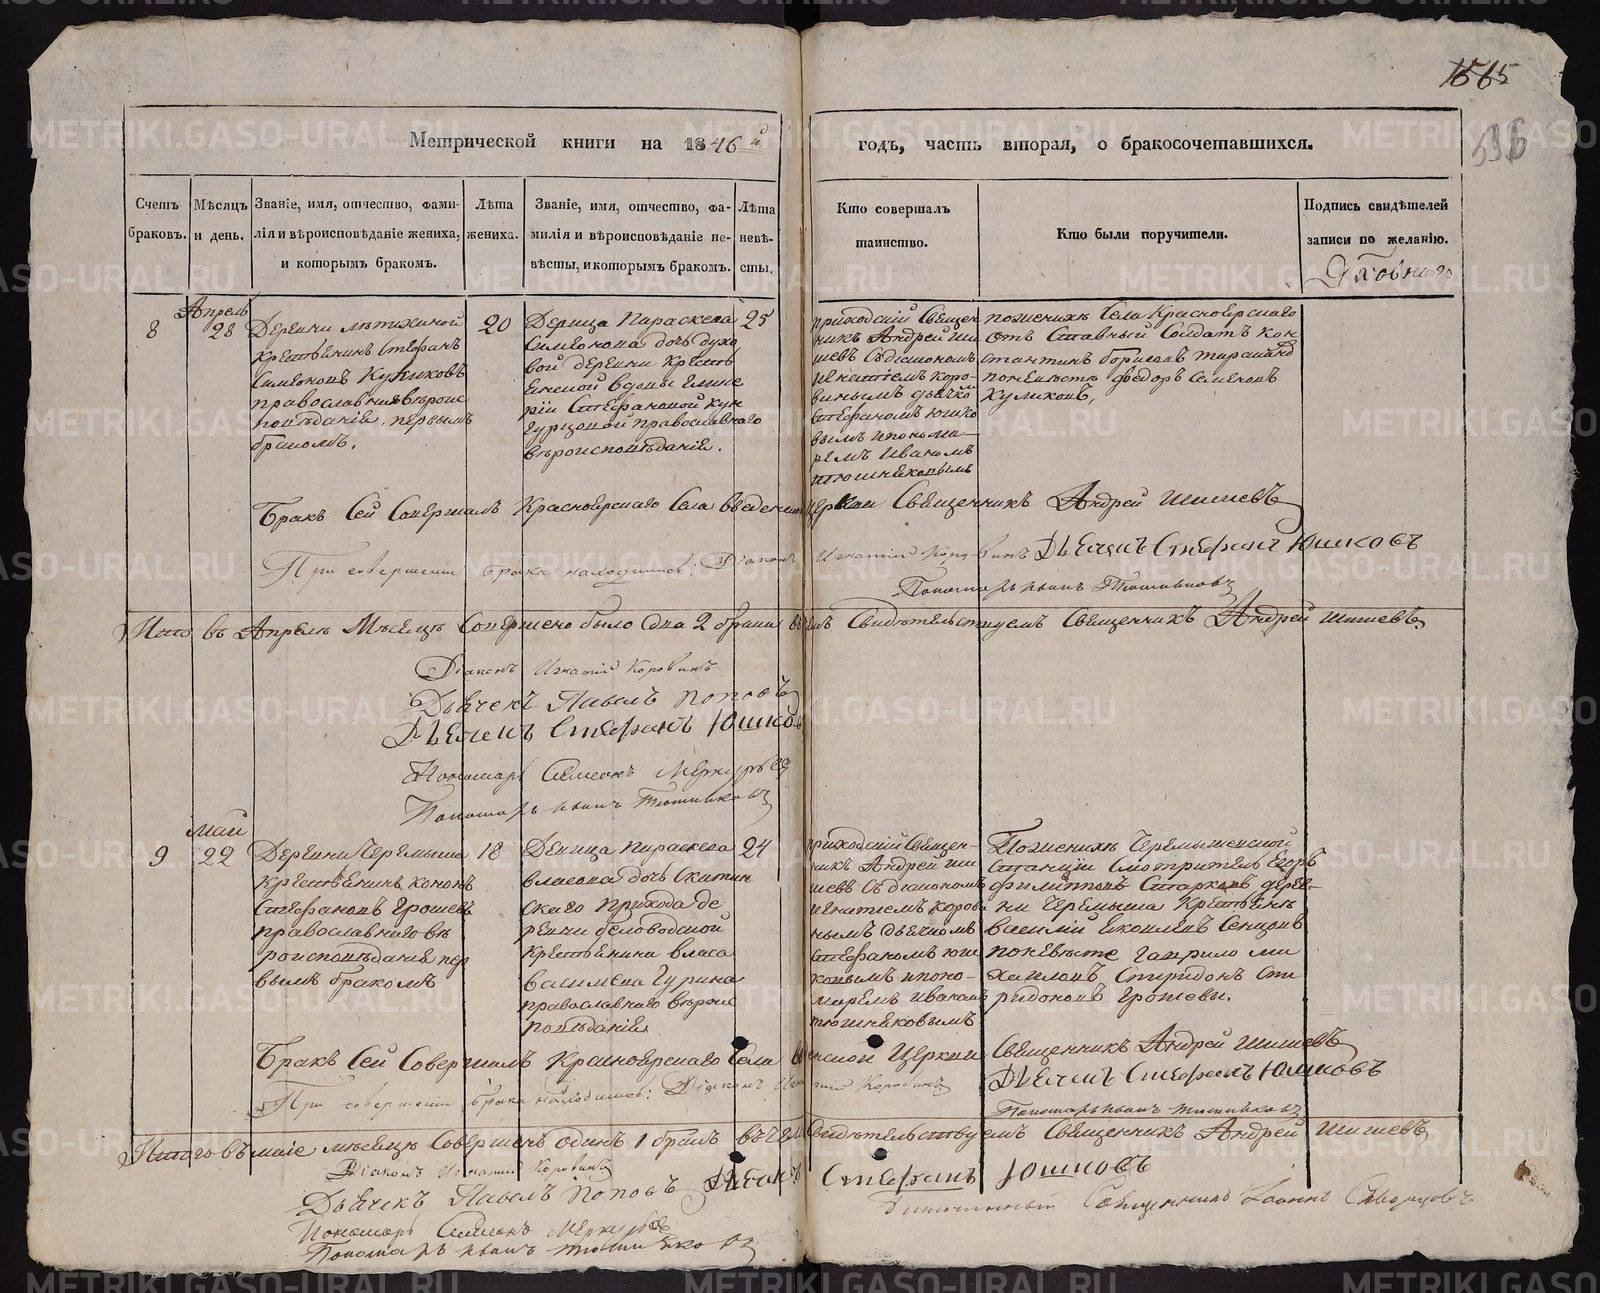 1565
536
Метрической книги на 1846й годъ, часть вторая, о бракосочетавшихся.
Счетъ браковъ.
Мѣсяцъ и день.
Званіе, имя, отчество, фами-
лія и вѣроисповѣданіе жениха,
и которымъ бракомъ.
Лѣта
жениха.
Званіе, имя, отчество, фа-
милія и вѣроисповѣданіе не-
вѣсты, и которымъ бракомъ.
Лѣта
невѣ-
сты.
Кто совершалъ
таинство.
Кто были поручители.
Подпись свидѣтелей
записи по желанію.
8
Апрель
28
Деревни
крестьянинъ Стефанъ
Симеоновъ Куликовъ
православнаго вѣроис
повѣданія, первымъ
бракомъ.
20
Девица Параскева
Симеонова дочь духо
вой деревни крестья
енской вдовы
Стефановой кун
гурцовой православнаго
вѣроисповѣданія.
25
приходскій Священ
никъ Андрей Ши
шевъ съ діакономъ
игнатіемъ коро
винымъ дьячко
Стефаномъ юшко
вымъ и понома-
ремъ Иваномъ
пожениху Села Красноярскаго
отъ Ставный Солдатъ Кон
стантинъ борисовъ
поневесте федоръ Семеновъ
Куликовъ,
Бракъ Сей Совершалъ Красноярскаго Села введенской церкви Священникъ Андрей Шишевъ
При совершеніи брака находились: Діаконъ Игнатій Коровинъ Дьячекъ Стефанъ Юшковъ
Пономарь иванъ
Итого въ Апреле Мѣсяце Совершено было два 2 брака въ чемъ Свидетельствуемъ Священникъ Андрей Шишевъ
Діаконъ Игнатій Коровинъ
Дьячекъ Павелъ Поповъ
Дьячекъ Стефанъ Юшковъ
Пономарь Симеонъ Меркурьевъ
Пономарь иванъ
9
май
22
Деревни Черемыша
крестьянинъ кононъ
Стефановъ Ерошевъ
православнаго вѣ
роисповѣданія пер
вымъ бракомъ
18
Девица Параскева
власова дочь Скатин
скаго прихода де
ревни беловодской
крестьянина власа
васильева Гурина
православнаго вѣроис
повѣданія
24
приходскій Священ-
никъ Андрей Ши
шевъ съ діакономъ
игнатіемъ корови
нымъ дьячкомъ
Стефаномъ юш
ковымъ и поно-
маремъ иваномъ
Пожениху Черемышенской
Станціи Смотритель Егоръ
филиповъ Старковъ дерев-
ни Черемыша Крестьянъ
василий Яковлевъ Сенцовъ
поневесте Гаврило ми
хайловъ Спиридонъ Спи
ридоновъ Ерошевы.
Бракъ Сей Совершалъ Красноярскаго Села введенской Церкви Священникъ Андрей Шишевъ
При совершеніи брака находились: Діаконъ Игнатій Коровинъ Дьячекъ Стефанъ Юшковъ
Пономарь иванъ
Итого въ маіе месяце Совершенъ одинъ 1 бракъ въ чемъ Свидетельствуемъ Священникъ Андрей Шишевъ
Діаконъ Игнатій Коровинъ
Дьячекъ Павелъ Поповъ Дьячекъ Стефанъ Юшковъ
Благочинный Священникъ Іоаннъ Скворцовъ
Пономарь Симеонъ Меркурьевъ
Пономарь иванъ
METRIKI.GASO-URAL.RU